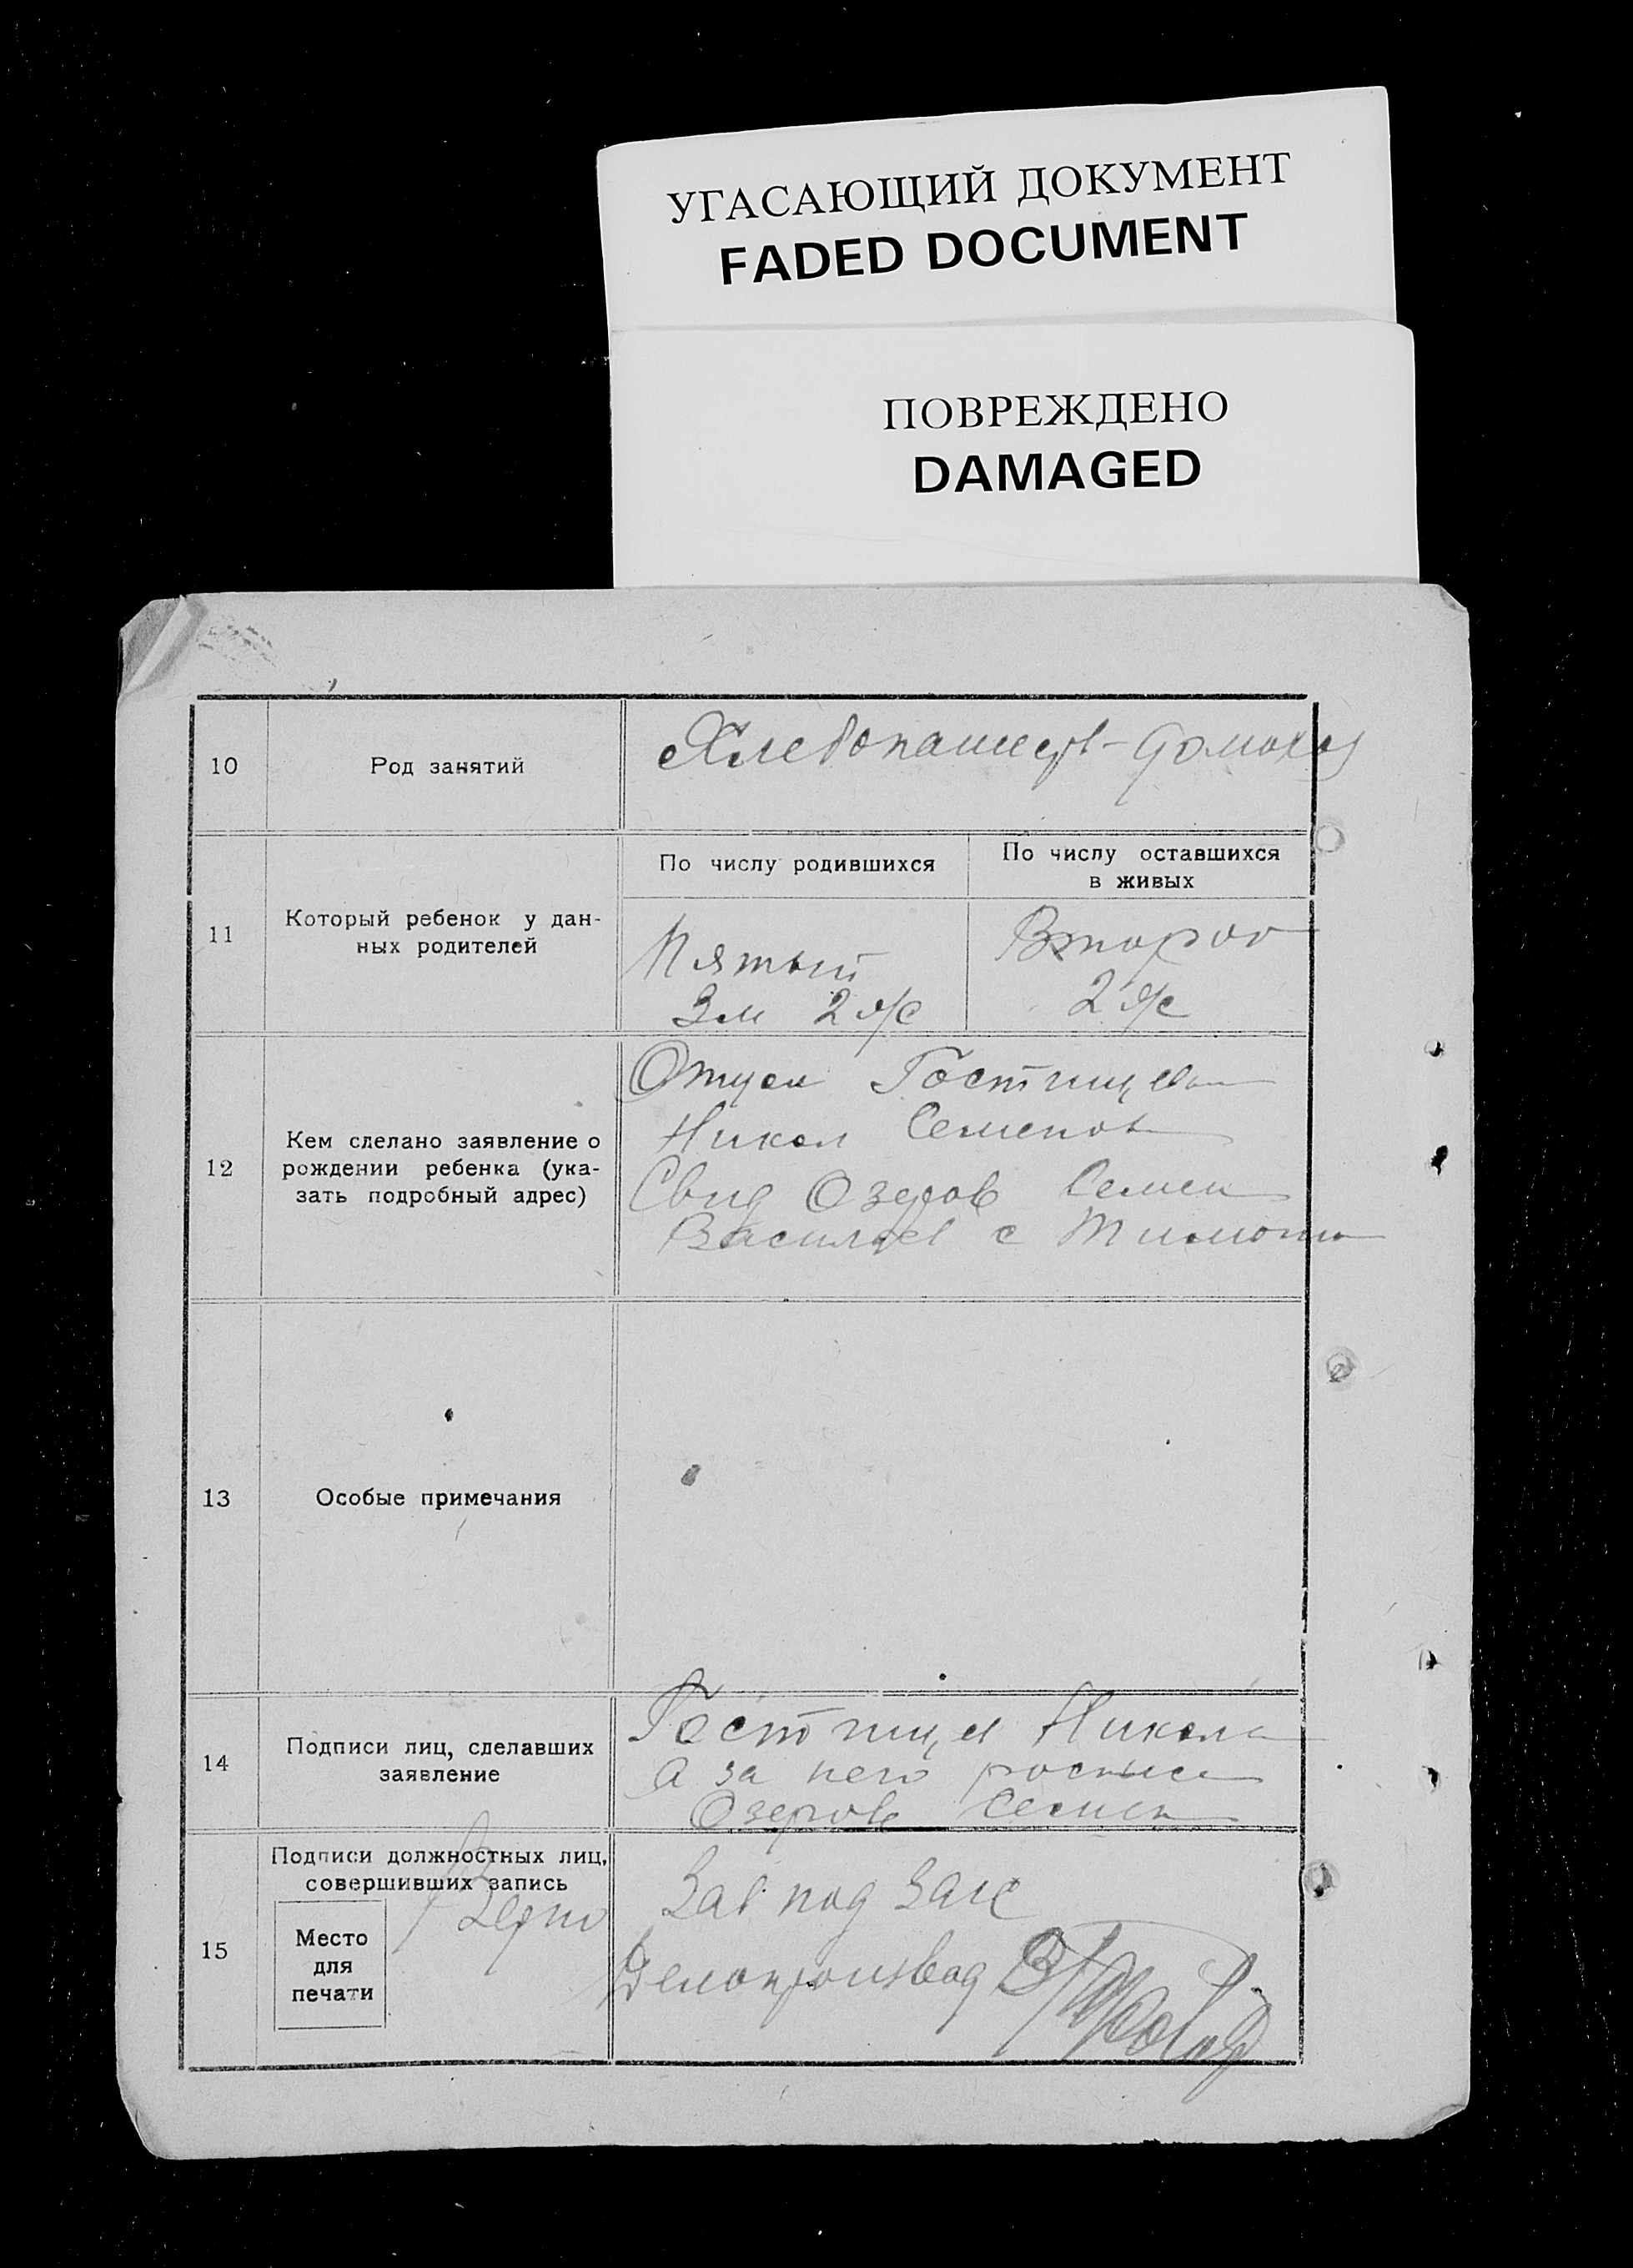 УГАСАЮЩИЙ ДОКУМЕНТ
FADED DOCUMENT
ПОВРЕЖДЕНО
DAMAGED
10
Род занятий
Хлебопашец-домохоз
11
Который ребенок у дан-
ных родителей
По числу родившихся
По числу оставшихся
в живых
Пятый
3 м 2 ж
Второй
2 ж
12
Кем сделано заявление о
рождении ребенка (ука-
зать подробный адрес)
Отцом
Никол Семенов
Свид Озеров Семен
с
13
Особые примечания
14
Подписи лиц, сделавших
заявление
Никола
а за него
Озеров Семен
15
Подписи должностных лиц,
совершивших запись
Верно
Место
для
печати
Зав под Загс
Делопроизвод